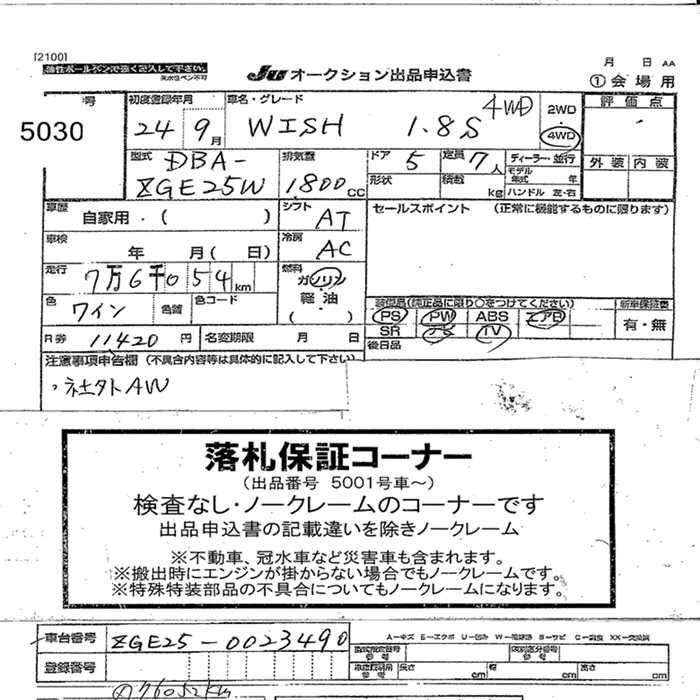 [2100]
油性ボールペンで強く記入して下さい。
※水性ペン不可
JU オークション出品申込書
月 日 AA
①会場用
号
5030
初度登録年月
24 9月
車名・グレード
WISH 1.8S 4WD
2WD
・
4WD
評価点
外装 内装
型式
DBA-
ZGE25W
排気量
1800cc
ドア 5
定員 7人
形状
積載 kg
ディーラー・並行
モデル年式 年
ハンドル 左・右
車歴
自家用・( )
シフト AT
セールスポイント (正常に機能するものに限ります)
車検
年 月( 日)
冷房 AC
走行
7万6千054km
燃料
ガソリン
・
軽油
( )
色
ワイン
色替
色コード
装備品(純正品に限り○をつけてください)
PS PW ABS エアB
SR ナビ TV
新車保証書
有・無
後日品
R券 11420円
名変期限 月 日
注意事項申告欄 (不具合内容等は具体的に記入して下さい)
・社外AW
落札保証コーナー
(出品番号 5001号車~)
検査なし・ノークレームのコーナーです
出品申込書の記載違いを除きノークレーム
※不動車、冠水車など災害車も含まれます。
※搬出時にエンジンが掛からない場合でもノークレームです。
※特殊特装部品の不具合についてもノークレームになります。
車台番号 ZGE25-0023490
登録番号
A-キズ E-エクボ U-凹み W-補修跡 S-サビ C-腐食 XX-交換済
型式指定番号
参考
類別区分番号
参考
参考
長さ cm 幅 cm 高さ cm